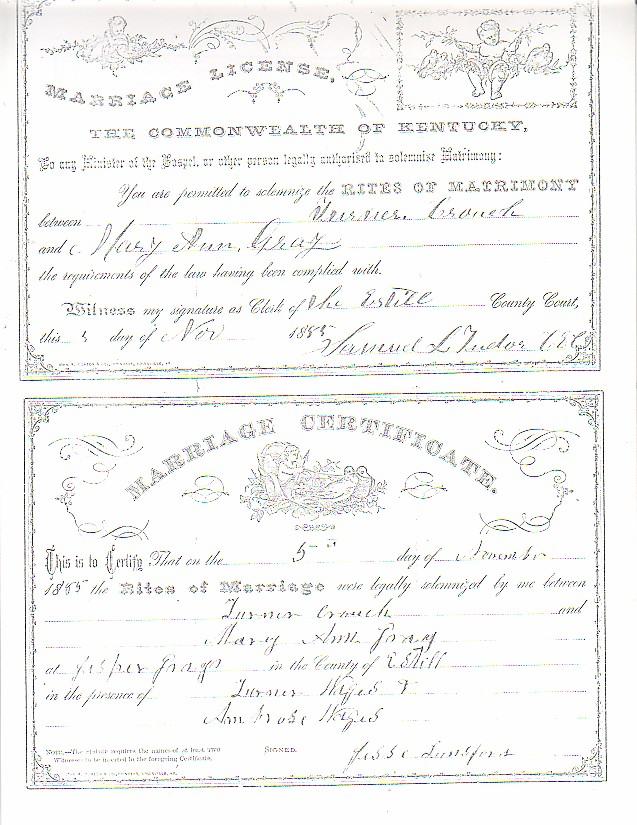 MARRIAGE LICENSE,
THE COMMONWEALTH OF KENTUCKY,
To any Minister of the Gospel, or other person legally authorised to solemnize Matrimony:
You are permitted to solemnize the RITES OF MATRIMONY
between Turner Crouch
and Mary Ann Gray
the requirements of the law having been complied with.
Witness my signature as Clerk of the Estill County Court,
this day of Nov 1865 Samuel L Tudor
MARRIAGE CERTIFICATE.
This is to Certify That on the 5 day of November
1865 the Rites of Marriage were legally solemnized by me between
Turner Crouch and
Mary Ann Gray
at Jasper Grays in the County of Estill
in the presence of Turner &
Ambrose
NOTE.—The statute requires the names of at least TWO SIGNED.
Witnesses to be inserted in the foregoing Certificate.
Jesse Lunsford